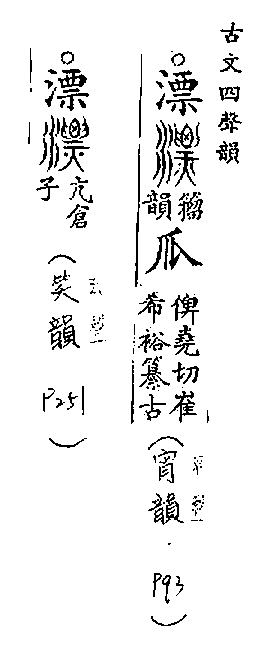 古文四聲韻
漂
籀韻
俾堯切崔
希裕纂古
(宵韻
P93)
漂
亢倉
子
(笑韻
P251)